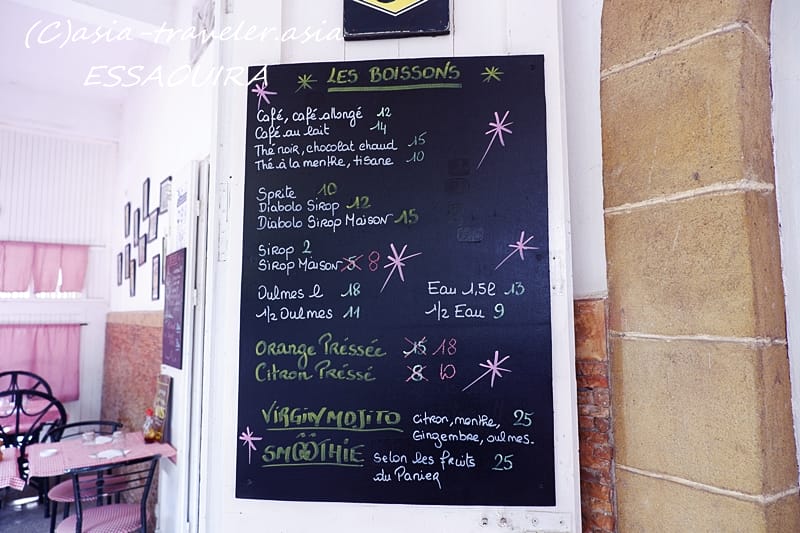 (C)asia-traveler.asia
ESSAOUIRA
LES BOISSONS
Café, café allongé 12
Café au lait 14
Thé noir, chocolat chaud 15
Thé à la menthe, tisane 10
Sprite 10
Diabolo Sirop 12
Diabolo Sirop Maison 15
Sirop 2
Sirop Maison 5 8
Oulmes l 18
1/2 Oulmes 11
Eau 1,5l 13
1/2 Eau 9
Orange Préssée 15 18
Citron Préssé 8 10
VIRGIN MOJITO Citron, menthe, 25
Gingembre, oulmes.
SMOOTHIE Selon les fruits 25
du Panier